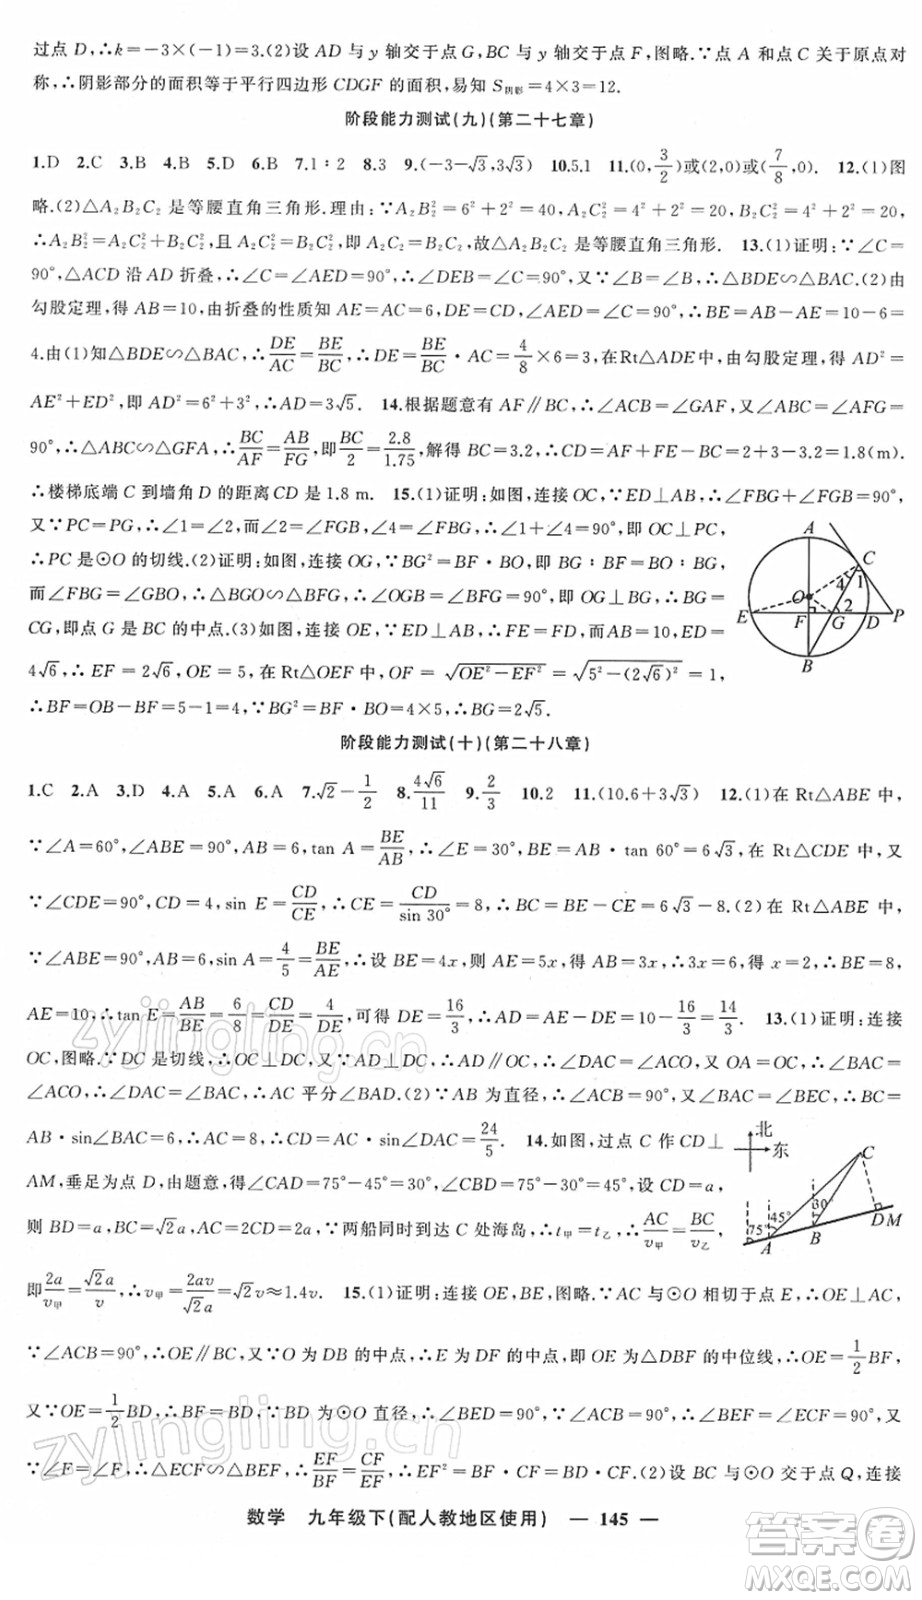 过点 D,∴k=-3×(-1)=3.(2)设 AD 与 y 轴交于点 G,BC 与 y 轴交于点 F,图略.∵点 A 和点 C 关于原点对
称,∴阴影部分的面积等于平行四边形 CDGF 的面积,易知 S阴影=4×3=12.
阶段能力测试(九)(第二十七章)
1.D 2.C 3.B 4.B 5.D 6.B 7.1∶2 8.3 9.(-3-√3,3√3) 10.5.1 11.(0,3/2)或(2,0)或(7/8,0). 12.(1)图
略.(2)△A₂B₂C₂ 是等腰直角三角形.理由:∵A₂B₂²=6²+2²=40,A₂C₂²=4²+2²=20,B₂C₂²=4²+2²=20,
∴A₂B₂²=A₂C₂²+B₂C₂²,且 A₂C₂²=B₂C₂²,即 A₂C₂=B₂C₂,故△A₂B₂C₂ 是等腰直角三角形. 13.(1)证明:∵∠C=
90°,△ACD 沿 AD 折叠,∴∠C=∠AED=90°,∴∠DEB=∠C=90°,又∵∠B=∠B,∴△BDE∽△BAC.(2)由
勾股定理,得 AB=10,由折叠的性质知 AE=AC=6,DE=CD,∠AED=∠C=90°,∴BE=AB-AE=10-6=
4.由(1)知△BDE∽△BAC,∴DE/AC=BE/BC,∴DE=BE/BC·AC=4/8×6=3,在Rt△ADE中,由勾股定理,得 AD²=
AE²+ED²,即 AD²=6²+3²,∴AD=3√5. 14.根据题意有 AF∥BC,∴∠ACB=∠GAF,又∠ABC=∠AFG=
90°,∴△ABC∽△GFA,∴BC/AF=AB/FG,即BC/2=2.8/1.75,解得 BC=3.2,∴CD=AF+FE-BC=2+3-3.2=1.8(m).
∴楼梯底端 C 到墙角 D 的距离 CD 是 1.8 m. 15.(1)证明:如图,连接 OC,∵ED⊥AB,∴∠FBG+∠FGB=90°,
又∵PC=PG,∴∠1=∠2,而∠2=∠FGB,∠4=∠FBG,∴∠1+∠4=90°,即 OC⊥PC,
∴PC 是⊙O 的切线.(2)证明:如图,连接 OG,∵BG²=BF·BO,即 BG∶BF=BO∶BG,
而∠FBG=∠GBO,∴△BGO∽△BFG,∴∠OGB=∠BFG=90°,即 OG⊥BG,∴BG=
CG,即点 G 是 BC 的中点.(3)如图,连接 OE,∵ED⊥AB,∴FE=FD,而 AB=10,ED=
4√6,∴EF=2√6,OE=5,在 Rt△OEF 中,OF=√(OE²-EF²)=√(5²-(2√6)²)=1,
∴BF=OB-BF=5-1=4,∵BG²=BF·BO=4×5,∴BG=2√5.
A
C
4
1
O
E
F
G
2
D
P
B
阶段能力测试(十)(第二十八章)
1.C 2.A 3.D 4.A 5.A 6.A 7.√2-1/2 8.4√6/11 9.2/3 10.2 11.(10.6+3√3) 12.(1)在 Rt△ABE 中,
∵∠A=60°,∠ABE=90°,AB=6,tan A=BE/AB,∴∠E=30°,BE=AB·tan 60°=6√3,在 Rt△CDE 中,又
∵∠CDE=90°,CD=4,sin E=CD/CE,∴CE=CD/sin 30°=8,∴BC=BE-CE=6√3-8.(2)在 Rt△ABE 中,
∵∠ABE=90°,AB=6,sin A=4/5=BE/AE,∴设 BE=4x,则 AE=5x,得 AB=3x,∴3x=6,得 x=2,∴BE=8,
AE=10,∴tan E=AB/BE=6/8=CD/DE=4/DE,可得 DE=16/3,∴AD=AE-DE=10-16/3=14/3. 13.(1)证明:连接
OC,图略.∵DC 是切线,∴OC⊥DC,又∵AD⊥DC,∴AD∥OC,∴∠DAC=∠ACO,又 OA=OC,∴∠BAC=
∠ACO,∴∠DAC=∠BAC,∴AC 平分∠BAD.(2)∵AB 为直径,∴∠ACB=90°,又∠BAC=∠BEC,∴BC=
AB·sin∠BAC=6,∴AC=8,∴CD=AC·sin∠DAC=24/5. 14.如图,过点 C 作 CD⊥
AM,垂足为点 D,由题意,得∠CAD=75°-45°=30°,∠CBD=75°-30°=45°,设 CD=a,
则 BD=a,BC=√2a,AC=2CD=2a,∵两船同时到达 C 处海岛,∴t甲=t乙,∴AC/v甲=BC/v乙,
即2a/v甲=√2a/v,∴v甲=2av/√2a=√2v≈1.4v. 15.(1)证明:连接 OE,BE,图略.∵AC 与⊙O 相切于点 E,∴OE⊥AC,
北
东
C
75°
45°
30°
A
B
D
M
∵∠ACB=90°,∴OE∥BC,又∵O 为 DB 的中点,∴E 为 DF 的中点,即 OE 为△DBF 的中位线,∴OE=1/2BF,
又∵OE=1/2BD,∴BF=BD,又∵BD 为⊙O 直径,∴∠BED=90°,∴∠BEF=90°,∴∠BEF=∠ECF=90°,又
∵∠F=∠F,∴△ECF∽△BEF,∴EF/BF=CF/EF,∴EF²=BF·CF.(2)∵BC 与⊙O 交于点 Q,连接
数学 九年级下(配人教地区使用) — 145 —
zyjingling.cn
zyjingling.cn
答案圈
MXQE.COM